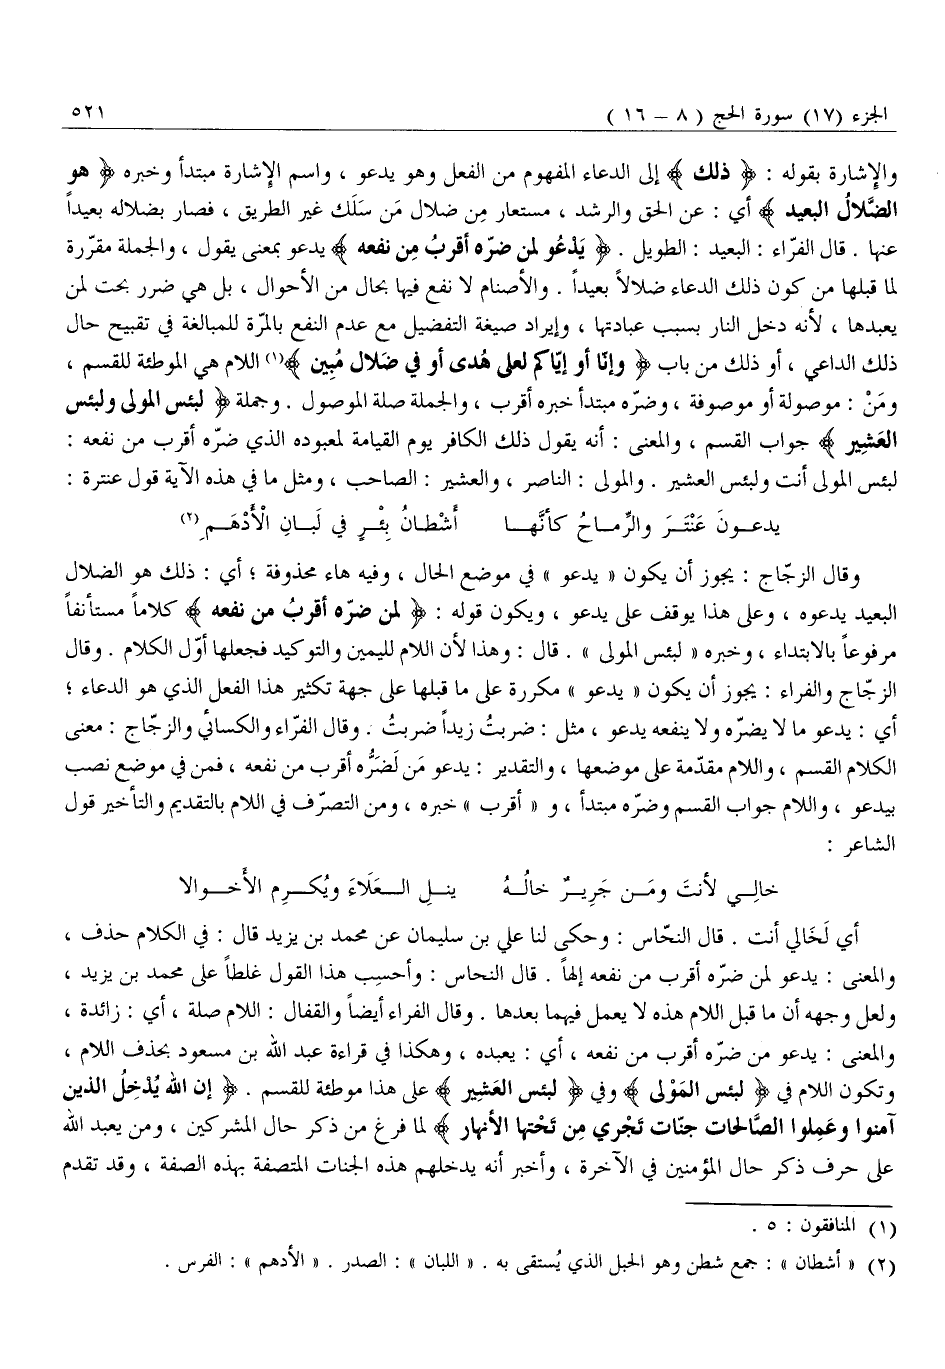 الجزء (١٧) سورة الحج ( ٨ – ١٦ ) ٥٢١
والإِشارة بقوله : ﴿ ذلك ﴾ إلى الدعاء المفهوم من الفعل وهو يدعو ، واسم الإِشارة مبتدأ وخبره ﴿ هو
الضَّلالُ البعيد ﴾ أي : عن الحق والرشد ، مستعار مِن ضلال مَن سَلَك غير الطريق ، فصار بضلاله بعيداً
عنها . قال الفرّاء : البعيد : الطويل . ﴿ يَدْعُو لمن ضرّه أقربُ مِن نفعه ﴾ يدعو بمعنى يقول ، والجملة مقررة
لما قبلها من كون ذلك الدعاء ضلالاً بعيداً . والأصنام لا نفع فيها بحال من الأحوال ، بل هي ضرر بحت لمن
يعبدها ، لأنه دخل النار بسبب عبادتها ، وإيراد صيغة التفضيل مع عدم النفع بالمرّة للمبالغة في تقبيح حال
ذلك الداعي ، أو ذلك من باب ﴿ وإنّا أو إيّاكم لعلى هُدى أو في ضَلال مُبين ﴾(١) اللام هي الموطئة للقسم ،
ومَنْ : موصولة أو موصوفة ، وضرّه مبتدأ خبره أقرب ، والجملة صلة الموصول . وجملة ﴿ لبئس المولى ولبئس
العَشِير ﴾ جواب القسم ، والمعنى : أنه يقول ذلك الكافر يوم القيامة لمعبوده الذي ضرّه أقرب من نفعه :
لبئس المولى أنت ولبئس العشير . والمولى : الناصر ، والعشير : الصاحب ، ومثل ما في هذه الآية قول عنترة :
يدعـونَ عَنْتَـرَ والرِّماحُ كأنَّهـا أَشْطـانُ بِئْـرٍ في لَبـانِ الْأَدْهَـمِ(٢)
وقال الزجّاج : يجوز أن يكون « يدعو » في موضع الحال ، وفيه هاء محذوفة ؛ أي : ذلك هو الضلال
البعيد يدعوه ، وعلى هذا يوقف على يدعو ، ويكون قوله : ﴿ لمن ضرّه أقربُ من نفعه ﴾ كلاماً مستأنفاً
مرفوعاً بالابتداء ، وخبره « لبئس المولى » . قال : وهذا لأن اللام لليمين والتوكيد فجعلها أوّل الكلام . وقال
الزجّاج والفراء : يجوز أن يكون « يدعو » مكررة على ما قبلها على جهة تكثير هذا الفعل الذي هو الدعاء ؛
أي : يدعو ما لا يضرّه ولا ينفعه يدعو ، مثل : ضربتُ زيداً ضربتُ . وقال الفرّاء والكسائي والزجاج : معنى
الكلام القسم ، واللام مقدّمة على موضعها ، والتقدير : يدعو مَن لَضَرُّه أقرب من نفعه ، فمن في موضع نصب
بيدعو ، واللام جواب القسم وضرّه مبتدأ ، و « أقرب » خبره ، ومن التصرّف في اللام بالتقديم والتأخير قول
الشاعر :
خالِـي لأنتَ ومَـن جَرِيـرٌ خالُـهُ ينـلِ الـعَلَاءَ ويُكـرِم الأَخـوالا
أي لَخَالي أنت . قال النحّاس : وحكى لنا علي بن سليمان عن محمد بن يزيد قال : في الكلام حذف ،
والمعنى : يدعو لمن ضرّه أقرب من نفعه إلهاً . قال النحاس : وأحسِب هذا القول غلطاً على محمد بن يزيد ،
ولعل وجهه أن ما قبل اللام هذه لا يعمل فيهما بعدها . وقال الفراء أيضاً والقفال : اللام صلة ، أي : زائدة ،
والمعنى : يدعو من ضرّه أقرب من نفعه ، أي : يعبده ، وهكذا في قراءة عبد الله بن مسعود بحذف اللام ،
وتكون اللام في ﴿ لبئس المَوْلى ﴾ وفي ﴿ لبئس العَشير ﴾ على هذا موطئة للقسم . ﴿ إن الله يُدْخِلُ الذين
آمنوا وعَمِلوا الصَّالحات جنّات تَجْري مِن تَحْتها الأنهار ﴾ لما فرغ من ذكر حال المشركين ، ومن يعبد الله
على حرف ذكر حال المؤمنين في الآخرة ، وأخبر أنه يدخلهم هذه الجنات المتصفة بهذه الصفة ، وقد تقدم
(١) المنافقون : ٥ .
(٢) « أشطان » : جمع شطن وهو الحبل الذي يُستقى به . « اللبان » : الصدر . « الأدهم » : الفرس .